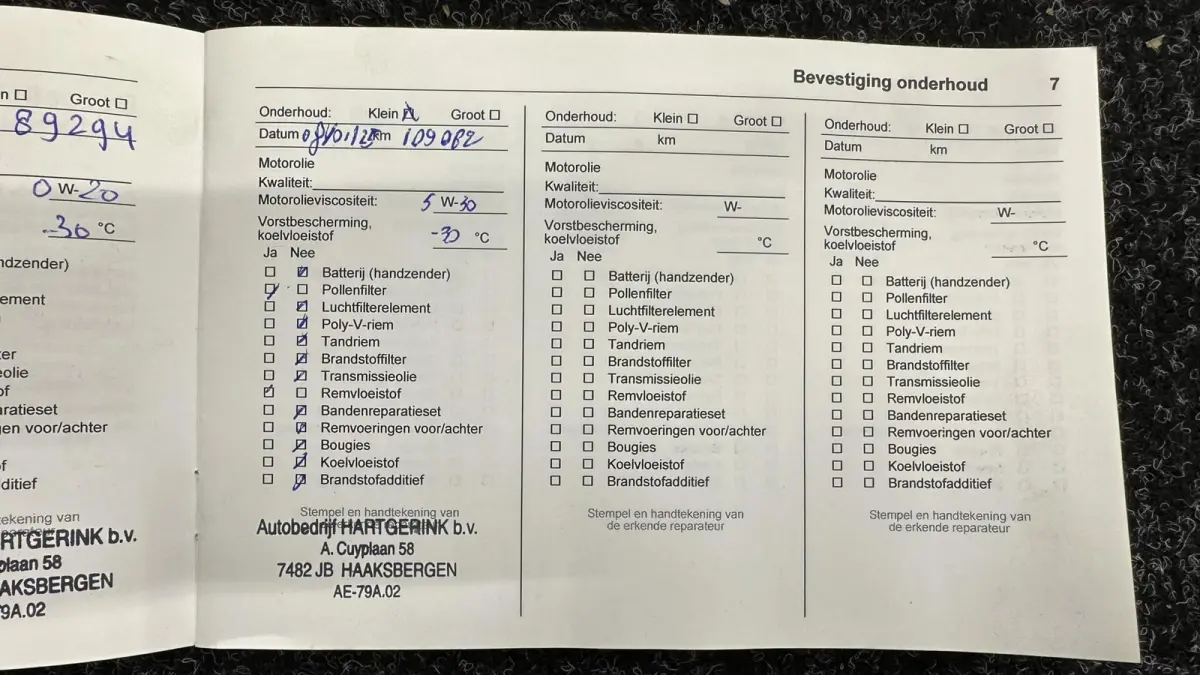 n ☐ Groot ☐
89294
0 W-20
-30 °C
ndzender)
ement
er
eolie
of
aratieset
gen voor/achter
f
ditief
tekening van
RTGERINK b.v.
plaan 58
AKSBERGEN
79A.02
Bevestiging onderhoud 7
Onderhoud: Klein ☒ Groot ☐
Datum 08/01/25 km 109082
Motorolie
Kwaliteit:
Motorolieviscositeit: 5 W-30
Vorstbescherming,
koelvloeistof -30 °C
Ja Nee
☐ ☑ Batterij (handzender)
☑ ☐ Pollenfilter
☐ ☑ Luchtfilterelement
☐ ☑ Poly-V-riem
☐ ☑ Tandriem
☐ ☑ Brandstoffilter
☐ ☑ Transmissieolie
☑ ☐ Remvloeistof
☐ ☑ Bandenreparatieset
☐ ☑ Remvoeringen voor/achter
☐ ☑ Bougies
☐ ☑ Koelvloeistof
☐ ☑ Brandstofadditief
Stempel en handtekening van
Autobedrijf HARTGERINK b.v.
A. Cuyplaan 58
7482 JB HAAKSBERGEN
AE-79A.02
Onderhoud: Klein ☐ Groot ☐
Datum km
Motorolie
Kwaliteit:
Motorolieviscositeit: W-
Vorstbescherming,
koelvloeistof °C
Ja Nee
☐ ☐ Batterij (handzender)
☐ ☐ Pollenfilter
☐ ☐ Luchtfilterelement
☐ ☐ Poly-V-riem
☐ ☐ Tandriem
☐ ☐ Brandstoffilter
☐ ☐ Transmissieolie
☐ ☐ Remvloeistof
☐ ☐ Bandenreparatieset
☐ ☐ Remvoeringen voor/achter
☐ ☐ Bougies
☐ ☐ Koelvloeistof
☐ ☐ Brandstofadditief
Stempel en handtekening van
de erkende reparateur
Onderhoud: Klein ☐ Groot ☐
Datum km
Motorolie
Kwaliteit:
Motorolieviscositeit: W-
Vorstbescherming,
koelvloeistof °C
Ja Nee
☐ ☐ Batterij (handzender)
☐ ☐ Pollenfilter
☐ ☐ Luchtfilterelement
☐ ☐ Poly-V-riem
☐ ☐ Tandriem
☐ ☐ Brandstoffilter
☐ ☐ Transmissieolie
☐ ☐ Remvloeistof
☐ ☐ Bandenreparatieset
☐ ☐ Remvoeringen voor/achter
☐ ☐ Bougies
☐ ☐ Koelvloeistof
☐ ☐ Brandstofadditief
Stempel en handtekening van
de erkende reparateur